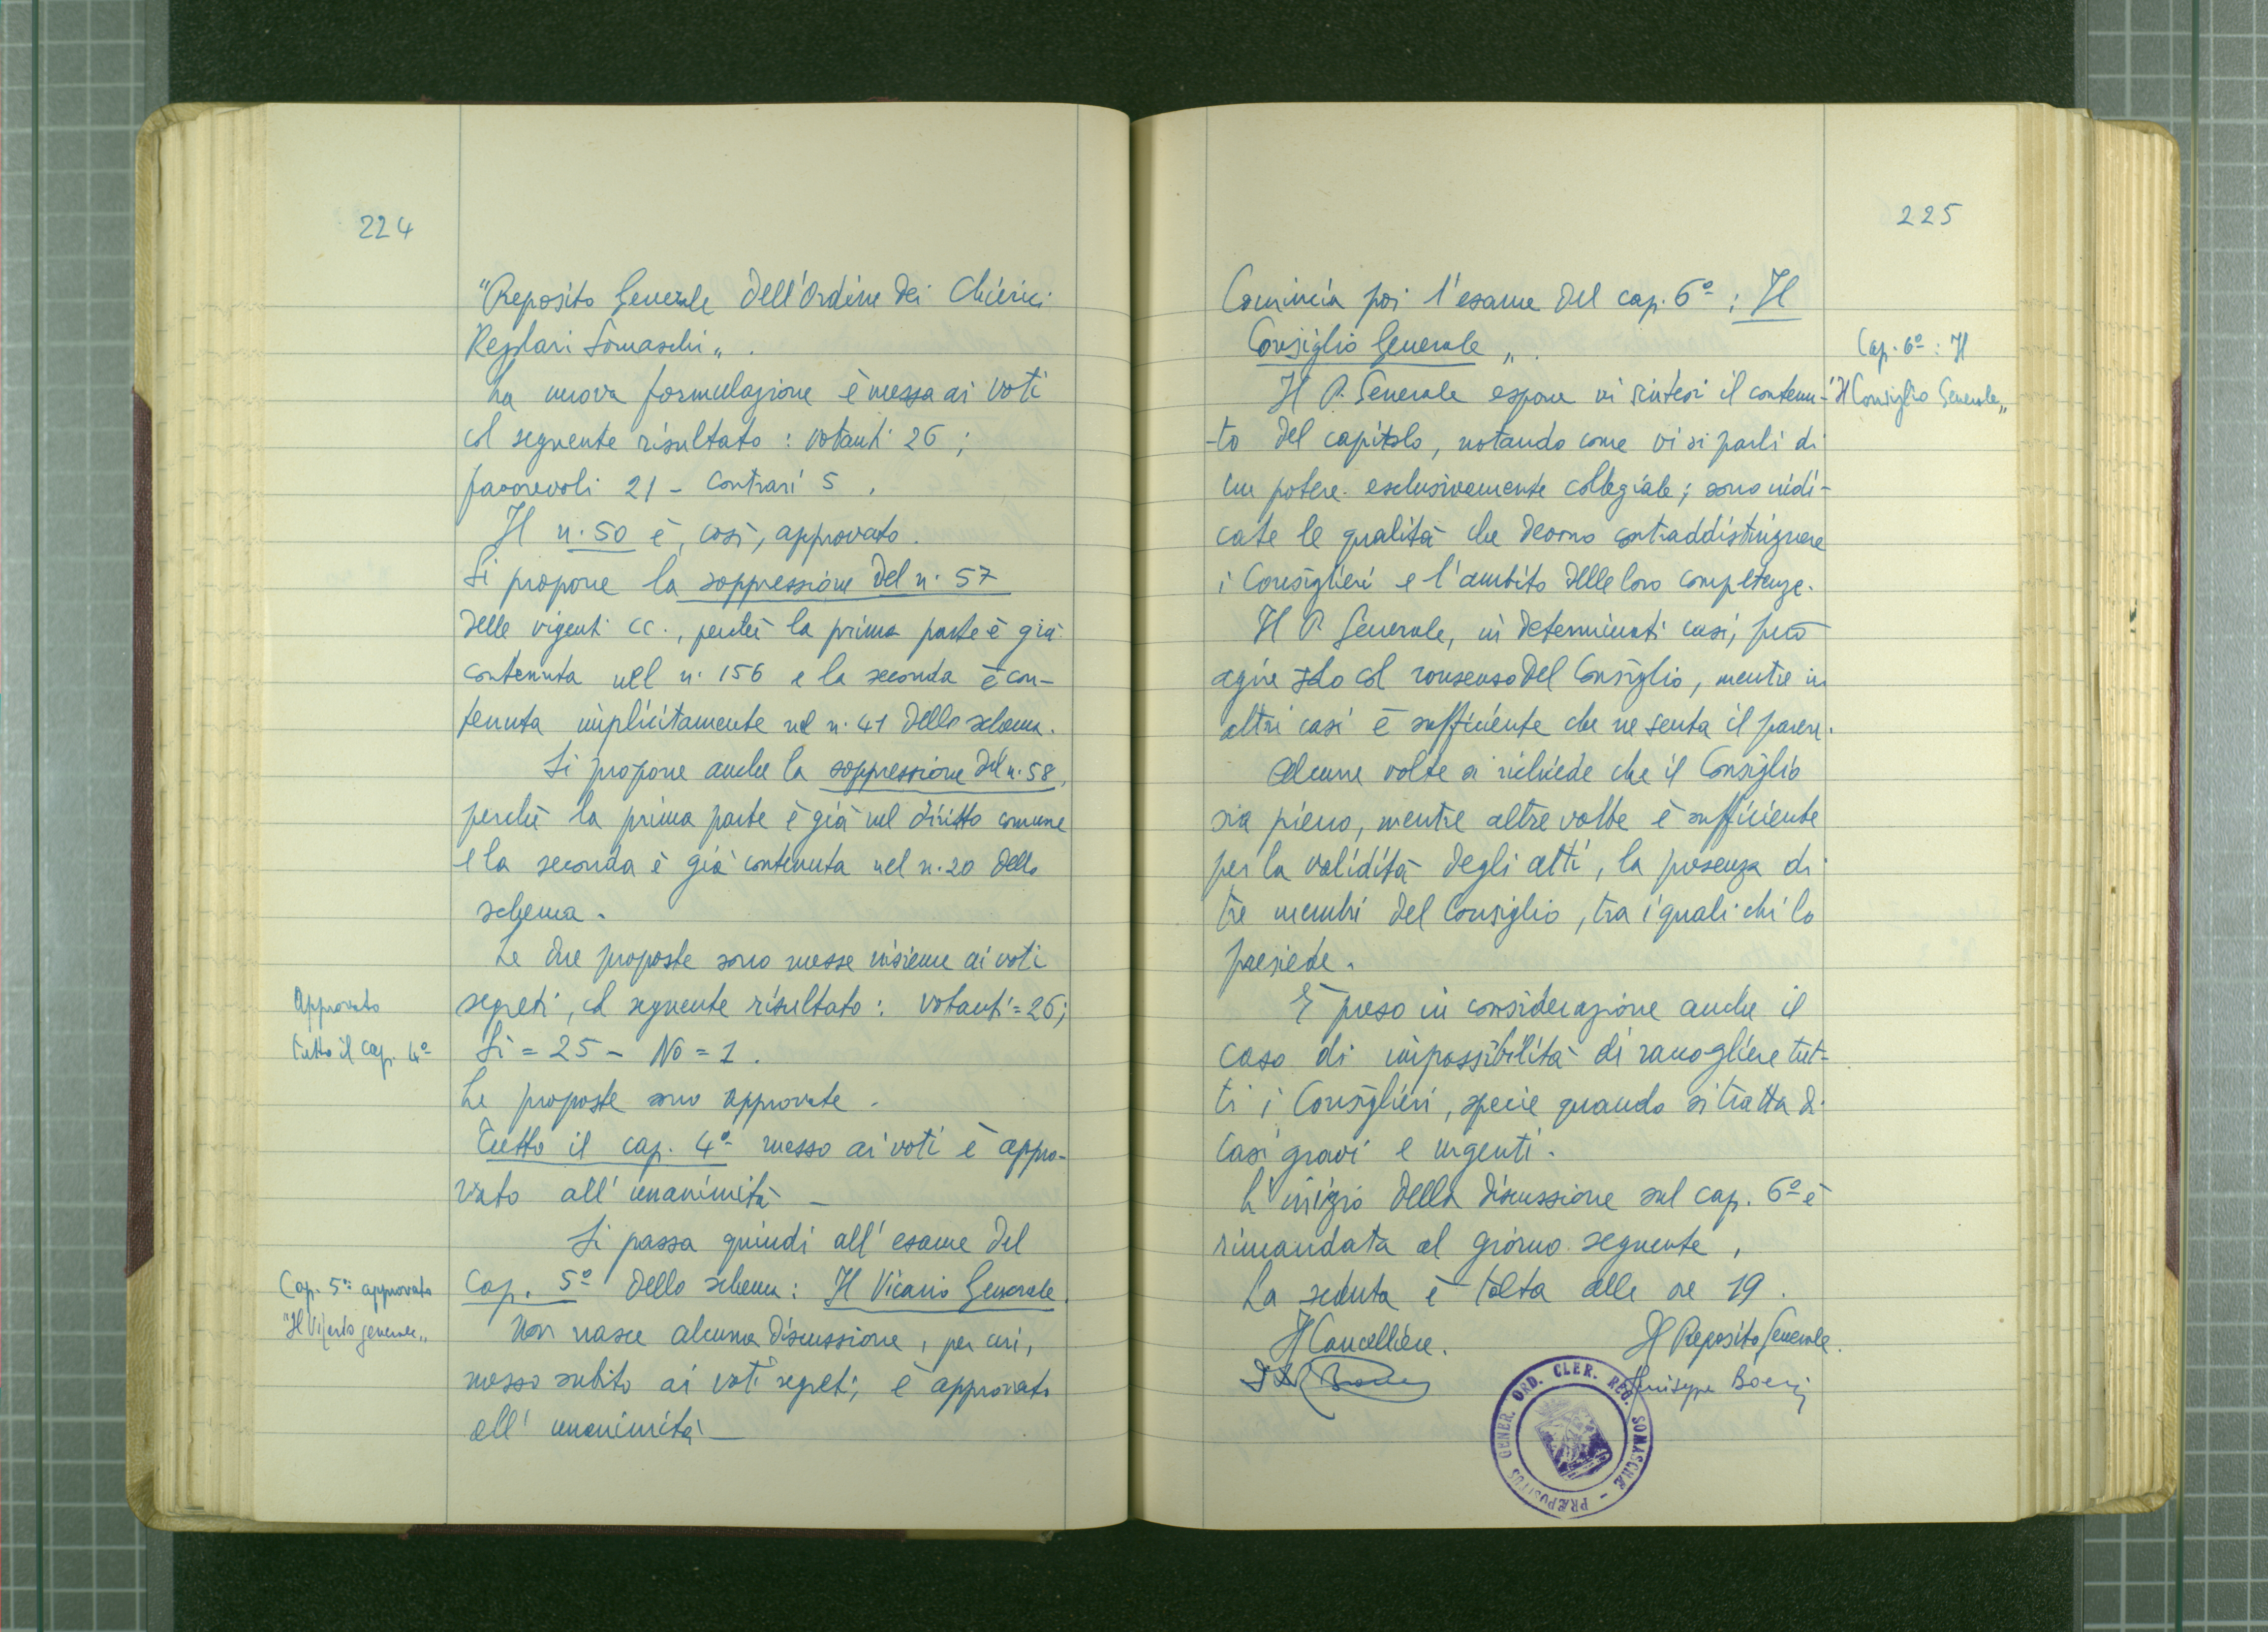 224
"Preposito Generale dell'Ordine dei Chierici
Regolari Somaschi„.
La nuova formulazione è messa ai voti
col seguente risultato: votanti 26;
favorevoli 21 - Contrari 5.
Il n. 50 è, così, approvato.
Si propone la soppressione del n. 57
delle vigenti CC., perché la prima parte è già
contenuta nel n. 156 e la seconda è con-
tenuta implicitamente nel n. 41 dello schema.
Si propone anche la soppressione del n. 58,
perché la prima parte è già nel diritto comune
e la seconda è già contenuta nel n. 20 dello
schema.
Le due proposte sono messe insieme ai voti
segreti, col seguente risultato: votanti = 26;
Si = 25 - No = 1.
Le proposte sono approvate.
Tutto il cap. 4º messo ai voti è appro-
vato all'unanimità -
Si passa quindi all'esame del
Cap. 5º dello schema: Il Vicario Generale.
Non nasce alcuna discussione, per cui,
messo subito ai voti segreti, è approvato
all'unanimità -
Approvato
tutto il cap. 4º
Cap. 5º approvato
"Il Vicario generale„
225
Comincia poi l'esame del cap. 6º: Il
Consiglio Generale„.
Il P. Generale espone in sintesi il contenu-
-to del capitolo, notando come vi si parli di
un potere esclusivamente collegiale; sono indi-
cate le qualità che devono contraddistinguere
i Consiglieri e l'ambito delle loro competenze.
Il P. Generale, in determinati casi, può
agire solo col consenso del Consiglio, mentre in
altri casi è sufficiente che ne senta il parere.
Alcune volte si richiede che il Consiglio
sia pieno, mentre altre volte è sufficiente
per la validità degli atti, la presenza di
tre membri del Consiglio, tra i quali chi lo
presiede.
È preso in considerazione anche il
caso di impossibilità di raccogliere tut-
ti i Consiglieri, specie quando si tratta di
casi gravi e urgenti.
L'inizio della discussione sul cap. 6º è
rimandata al giorno seguente,
La seduta è tolta alle ore 19.
Il Cancelliere.
Il Preposito Generale.
Giuseppe Boeri
Cap. 6º: Il
"Il Consiglio Generale„
PRÆPOSITUS GENER. ORD. CLER. REG. SOMASCHÆ -